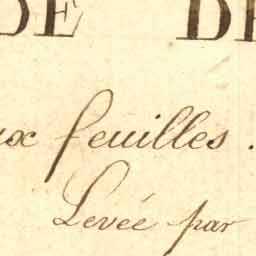 DE DE
ux feuilles.
Levée par